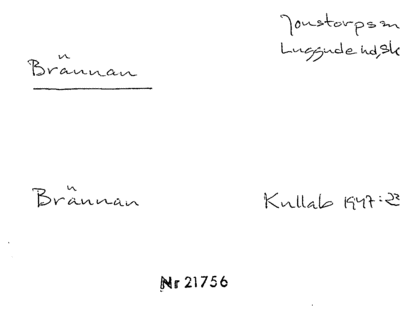 Jonstorps sn
Luggude hd, Sk
Brännan
Brännan
Kullab 1947:23
Nr 21756